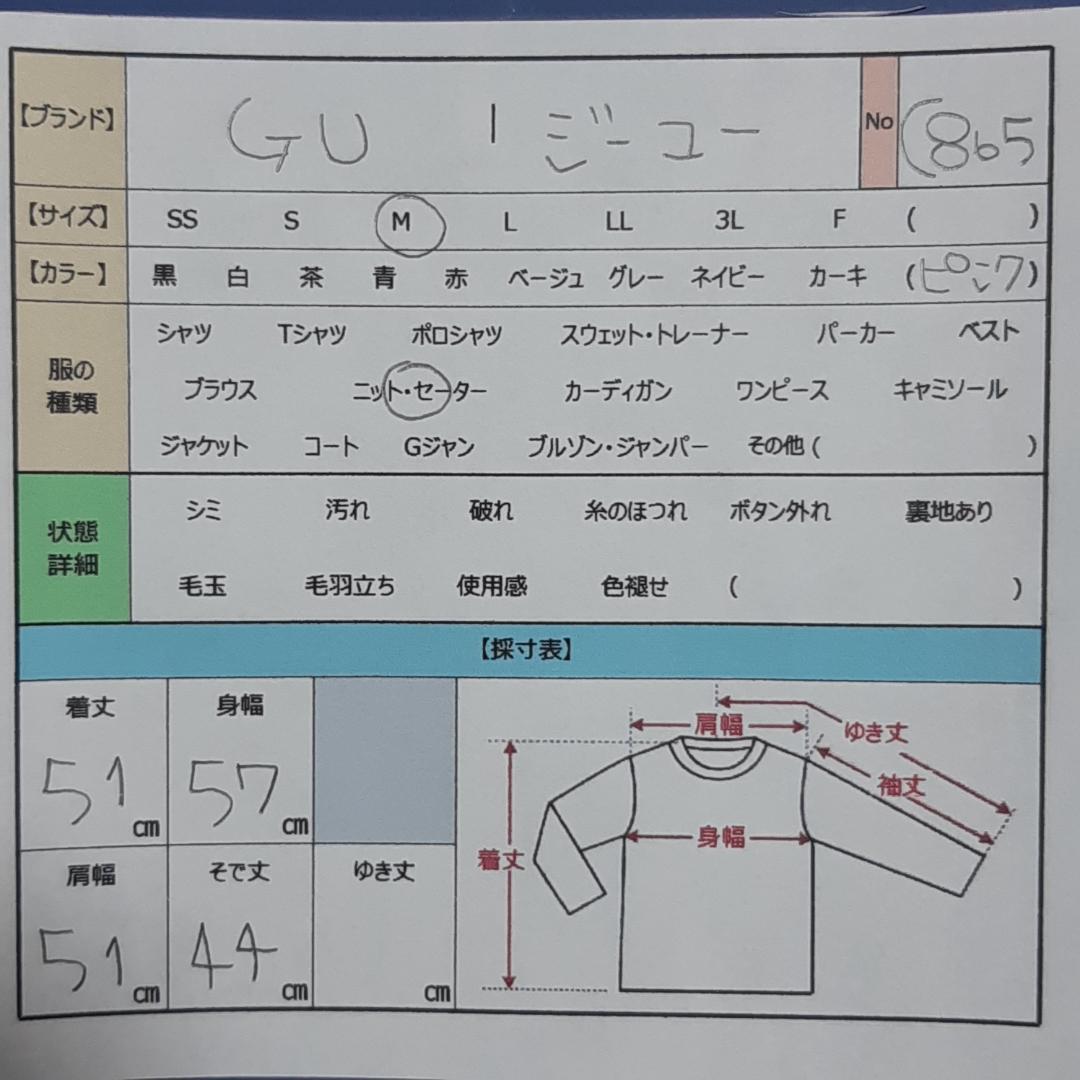 【ブランド】 GU | ジーユー No (865
【サイズ】 SS S M L LL 3L F ( )
【カラー】 黒 白 茶 青 赤 ベージュ グレー ネイビー カーキ (ピンク)
服の種類 シャツ Tシャツ ポロシャツ スウェット・トレーナー パーカー ベスト
ブラウス ニット・セーター カーディガン ワンピース キャミソール
ジャケット コート Gジャン ブルゾン・ジャンパー その他 ( )
状態詳細 シミ 汚れ 破れ 糸のほつれ ボタン外れ 裏地あり
毛玉 毛羽立ち 使用感 色褪せ ( )
【採寸表】
着丈 身幅
51 cm 57 cm
肩幅 そで丈 ゆき丈
51 cm 44 cm cm
肩幅 ゆき丈
袖丈
身幅
着丈